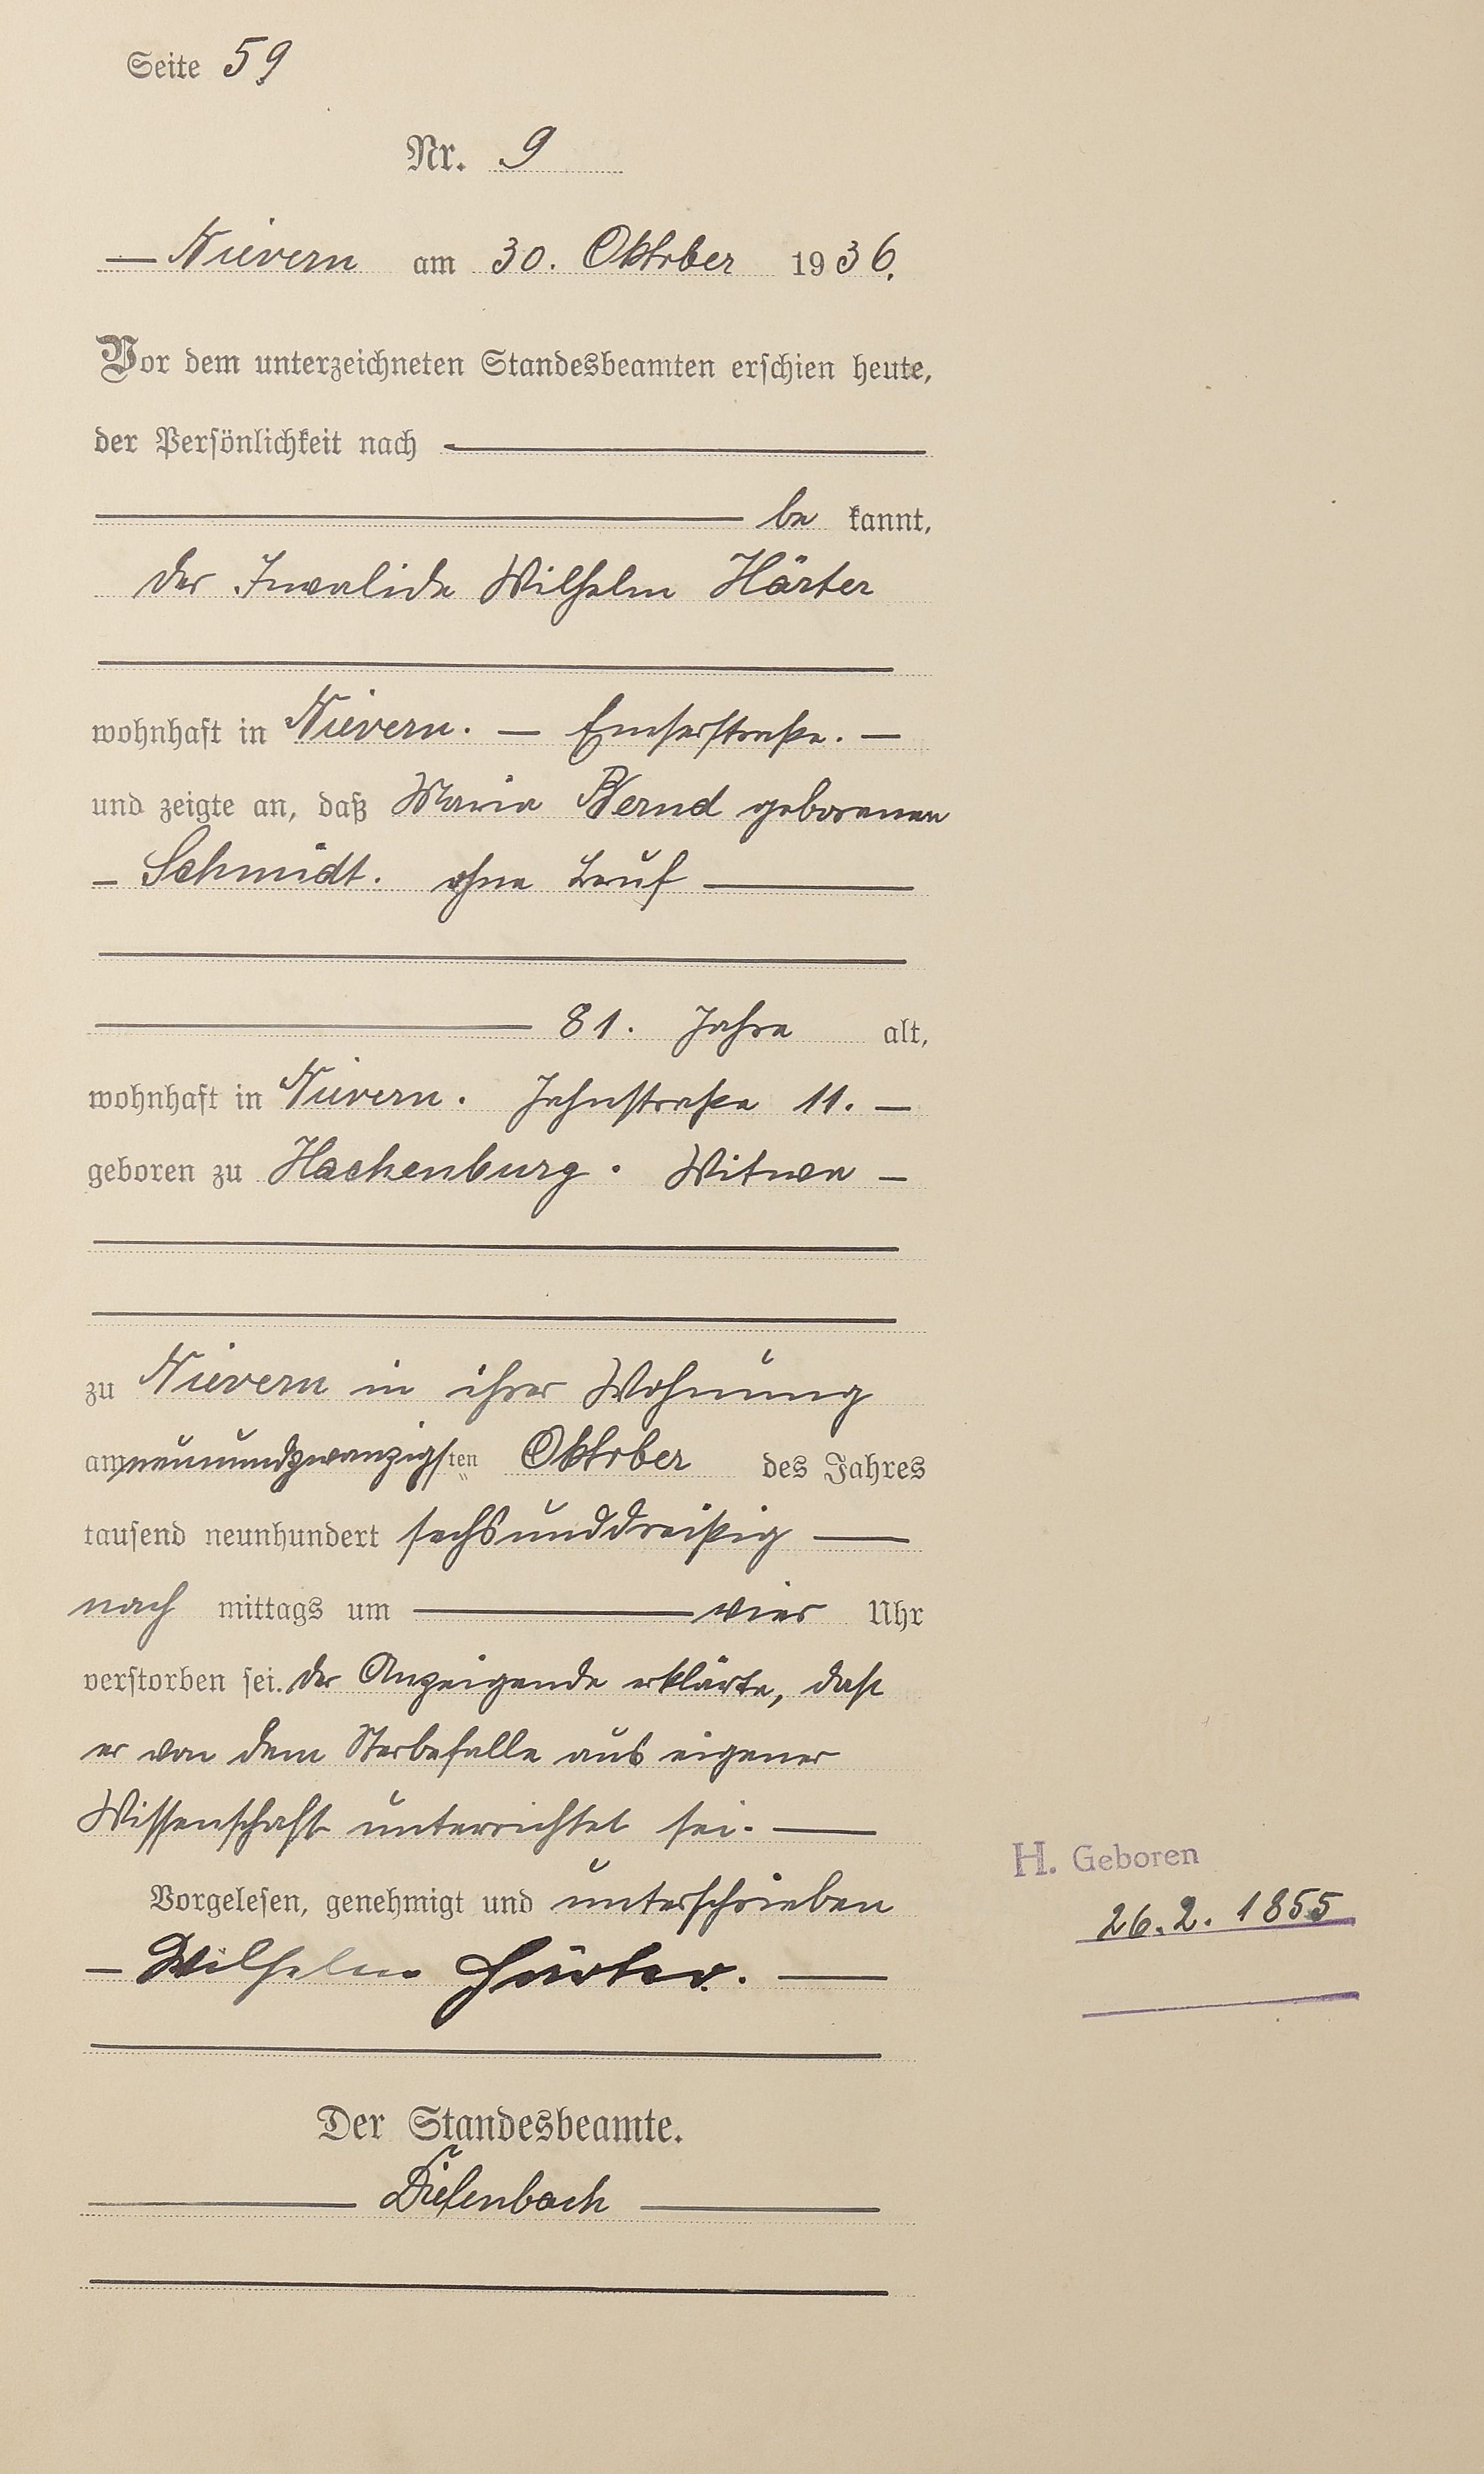 Seite 59
Nr. 9
— Nievern am 30. Oktober 1936.
Vor dem unterzeichneten Standesbeamten erschien heute,
der Persönlichkeit nach —
— be kannt,
der Invalide Wilhelm Härter
wohnhaft in Nievern. — Emserstraße. —
und zeigte an, daß Maria Bernd geborenen
— Schmidt. ohne Beruf —
— 81. Jahre alt,
wohnhaft in Nievern. Jahnstraße 11. —
geboren zu Hachenburg. Witwe —
zu Nievern in ihrer Wohnung
am neunundzwanzigsten Oktober des Jahres
tausend neunhundert sechsunddreißig —
nach mittags um — vier Uhr
verstorben sei. Der Anzeigende erklärte, daß
er von dem Sterbefalle aus eigener
Wissenschaft unterrichtet sei. —
Vorgelesen, genehmigt und unterschrieben
— Wilhelm Härter. —
Der Standesbeamte.
— Diefenbach —
H. Geboren
26.2. 1855